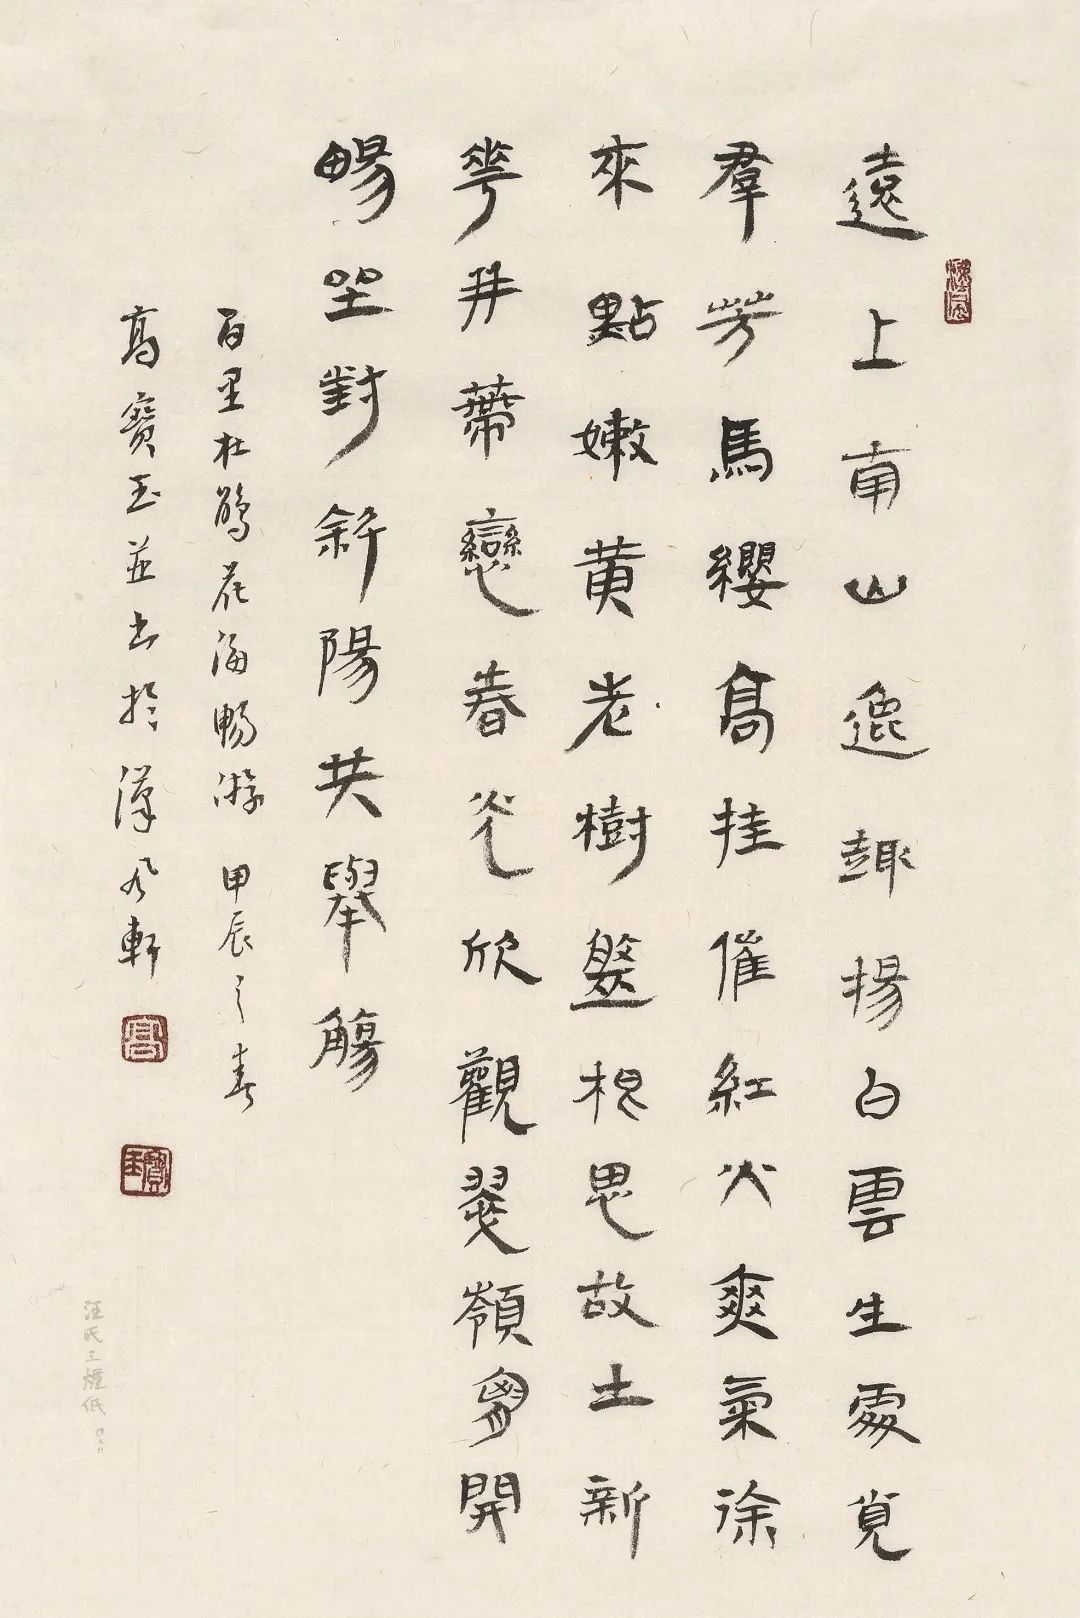 遠上南山逸趣揚白雲生處覓
羣芳馬纓高挂催紅火爽氣徐
來點嫩黄老樹盤根思故土新
華并蒂戀春光欣觀翠嶺胸開
暢坐對斜陽共舉觴
百里杜鵑花海暢游 甲辰之春
高寶玉並書於漢風軒
高
寶玉